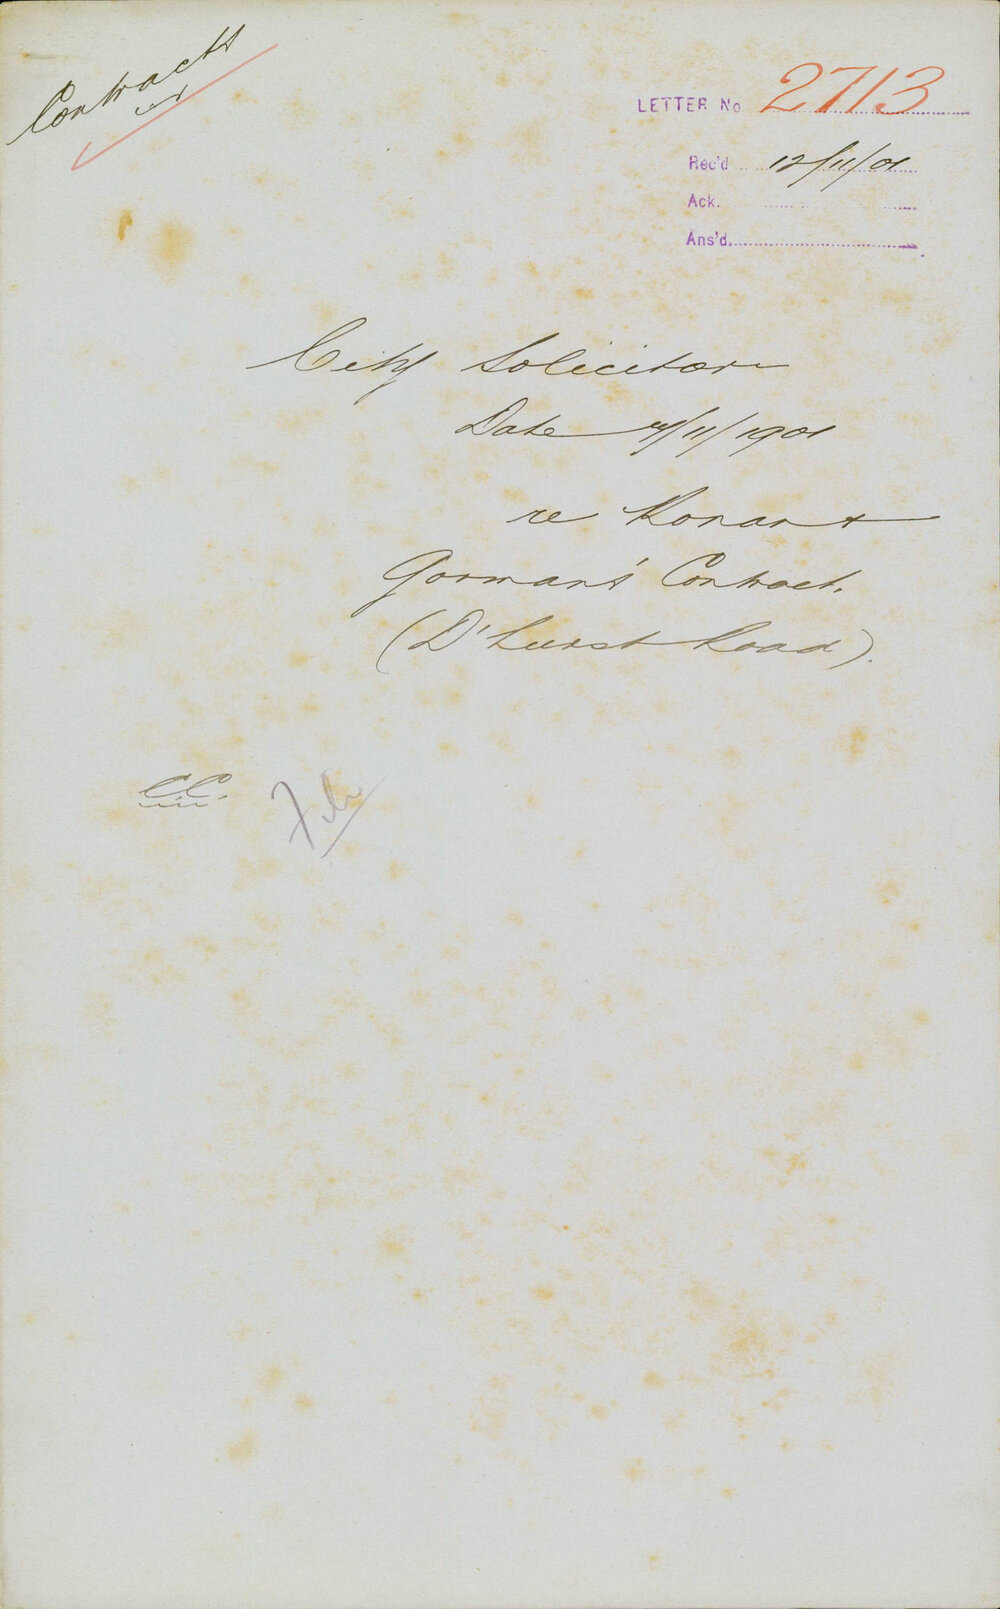 Contracts
LETTER No 2713
Rec'd 12/11/01
Ack.
Ans'd.
City Solicitor
Date /11/1901
re &
Gorman's Contract.
(D'hurst Road).
CC.
File